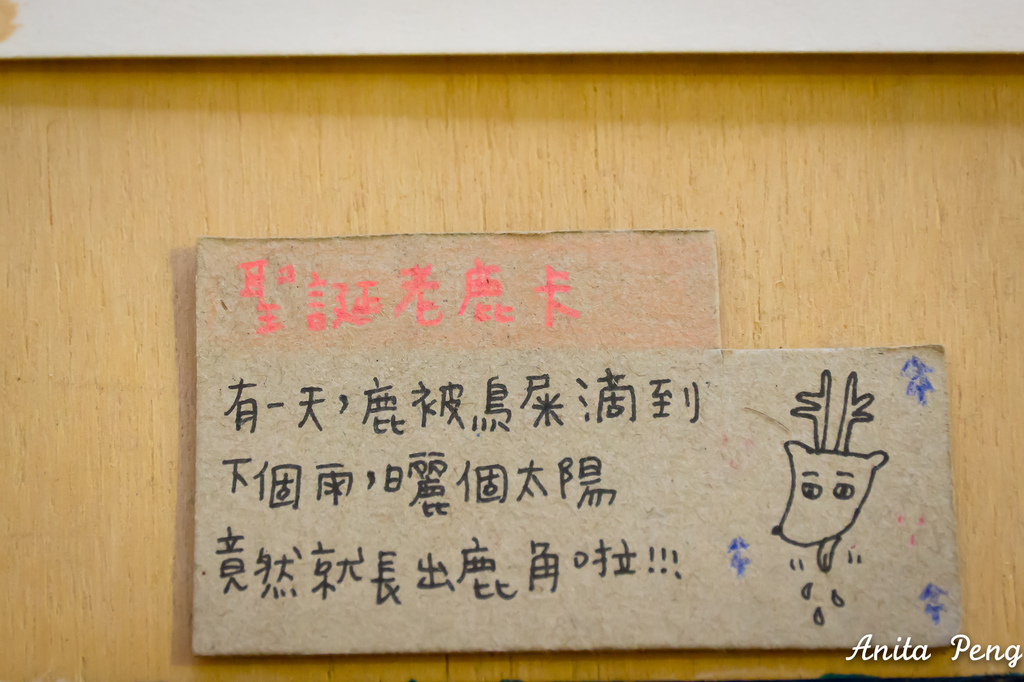 聖誕老鹿卡
有一天,鹿被鳥屎滴到
下個雨,曬個太陽
竟然就長出鹿角啦!!!
Anita Peng